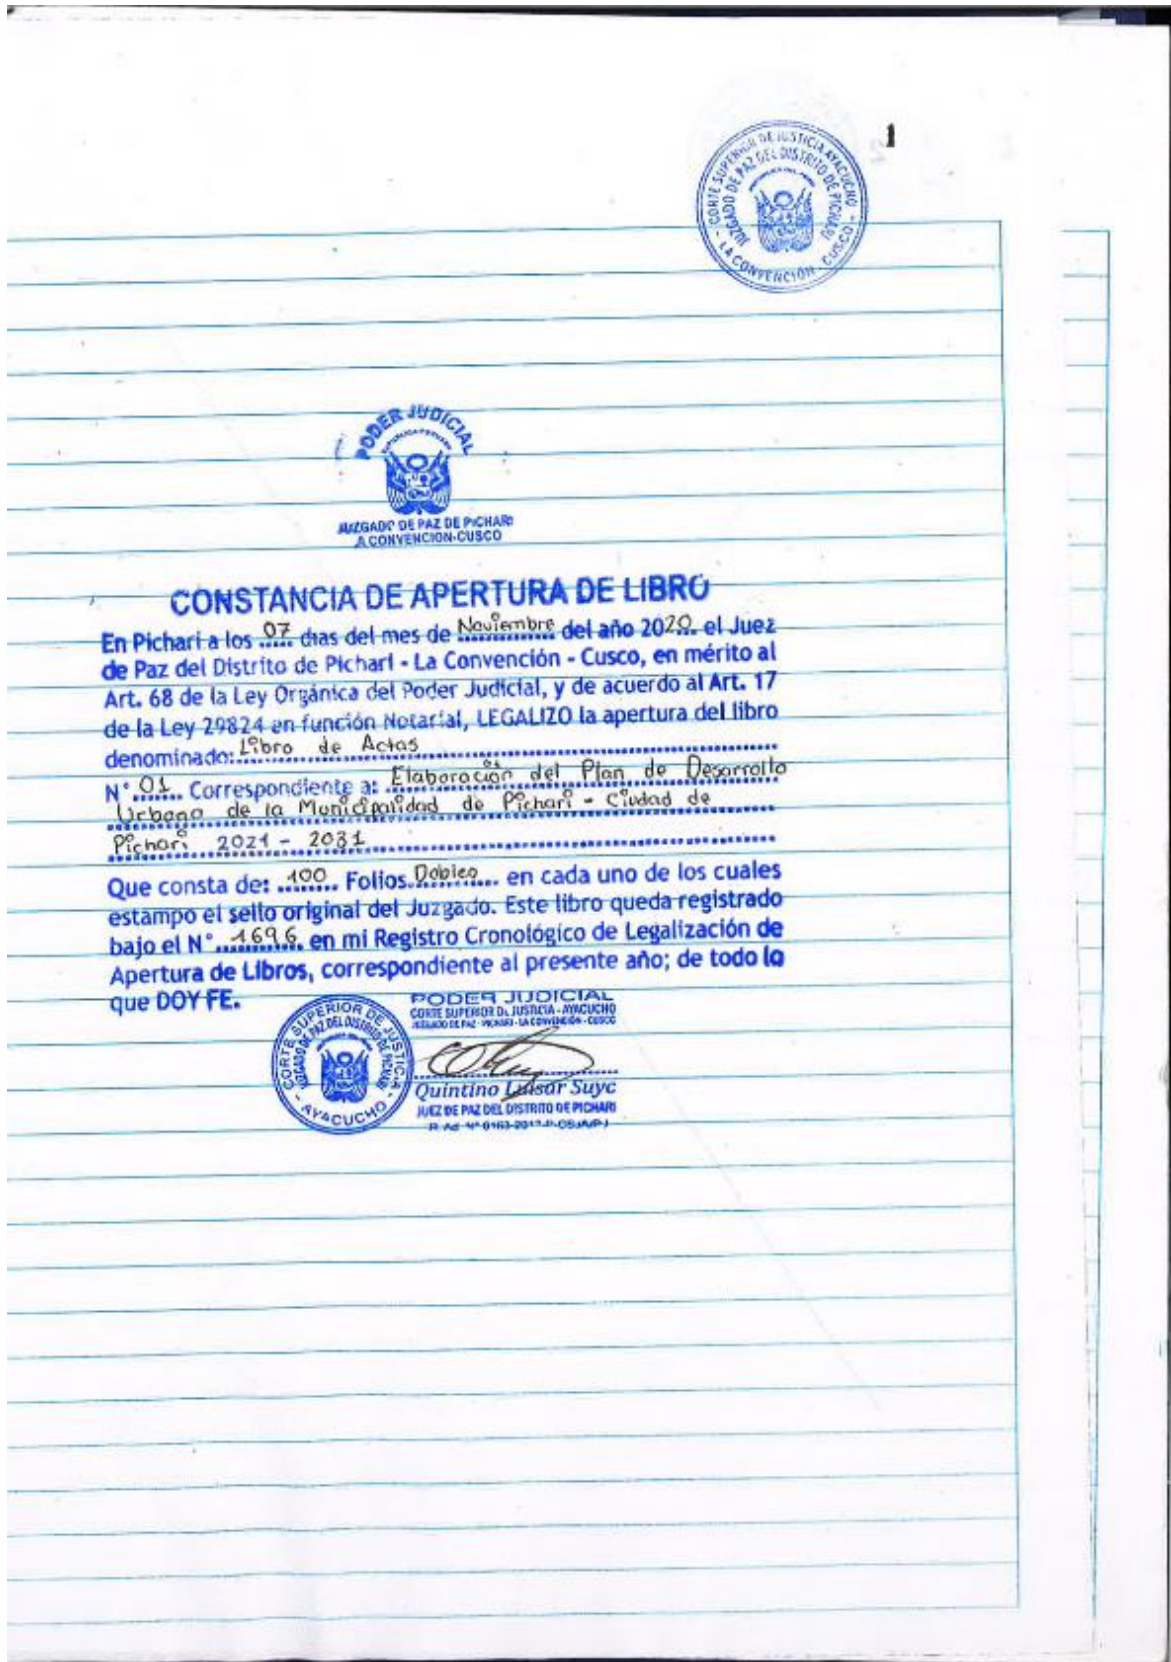 1
CORTE SUPERIOR DE JUSTICIA AYACUCHO
JUZGADO DE PAZ DEL DISTRITO DE PICHARI
- LA CONVENCIÓN - CUSCO -
PODER JUDICIAL
JUZGADO DE PAZ DE PICHARI
A CONVENCION-CUSCO
CONSTANCIA DE APERTURA DE LIBRO
En Pichari a los 07 dias del mes de Noviembre del año 2020 el Juez
de Paz del Distrito de Pichari - La Convención - Cusco, en mérito al
Art. 68 de la Ley Orgánica del Poder Judicial, y de acuerdo al Art. 17
de la Ley 29824 en función Notarial, LEGALIZO la apertura del libro
denominado: Libro de Actas
N° 01 Correspondiente a: Elaboración del Plan de Desarrollo
Urbano de la Municipalidad de Pichari - Ciudad de
Pichari 2021 - 2031
Que consta de: 100 Folios Dobles en cada uno de los cuales
estampo el sello original del Juzgado. Este libro queda registrado
bajo el N° 1696 en mi Registro Cronológico de Legalización de
Apertura de Libros, correspondiente al presente año; de todo lo
que DOY FE.
CORTE SUPERIOR DE JUSTICIA
JUZGADO DE PAZ DEL DISTRITO DE PICHARI
- AYACUCHO -
PODER JUDICIAL
CORTE SUPERIOR DE JUSTICIA - AYACUCHO
JUZGADO DE PAZ - PICHARI - LA CONVENCIÓN - CUSCO
Quintino Suyc
JUEZ DE PAZ DEL DISTRITO DE PICHARI